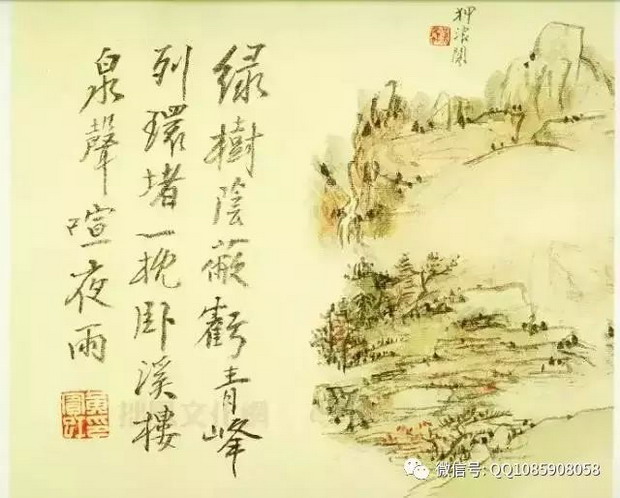 狎浪閣
绿樹陰蔽虧青峰
列環堵一枕卧溪樓
泉聲喧夜雨
微信号: QQ1085908058